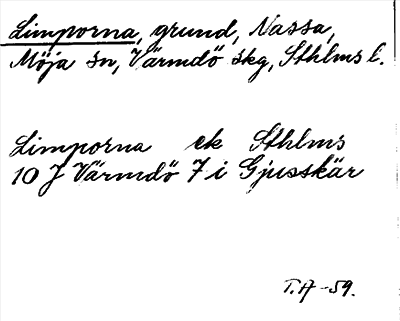 Limporna, grund, Nassa,
Möja sn, Värmdö skg, Sthlms l.
Limporna ek Sthlms
10 J Värmdö 7 i Gjusskär
T.A -59.